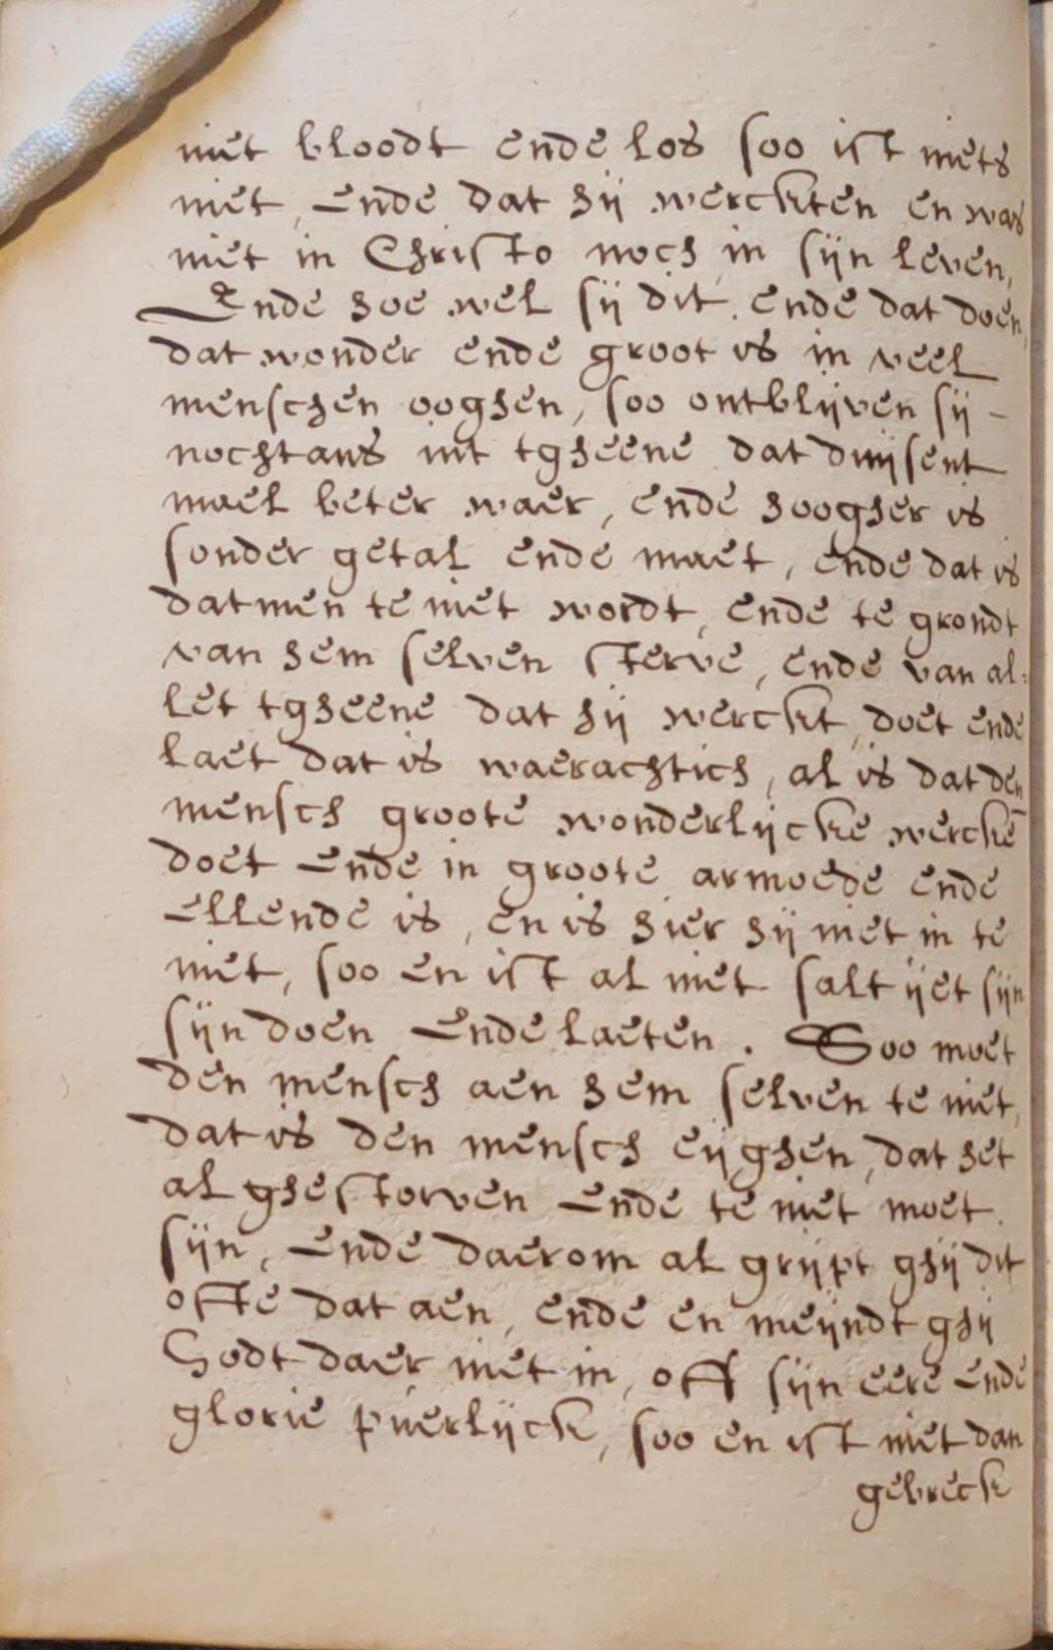 niet bloodt ende los soo ist niets
niet, ende dat hij werckten en was
niet in Christo noch in sijn leven,
Ende hoe wel sij dit ende dat doen,
dat wonder ende groot is in veel
menschen ooghen, soo ontblijven sij -
nochtans int tgheene dat duijsent
mael beter waer, ende hoogher is
sonder getal ende maet, ende dat is
datmen te niet wordt, ende te grondt
van hem selven sterve, ende van al:
let tgheene dat hij werckt, doet ende
laet dat is waerachtich, al is dat den
mensch groote wonderlijcke werckē
doet ende in groote armoede ende
ellende is, en is hier hij niet in te
niet, soo en ist al niet salt ijet sijn
sijn doen ende laeten. Soo moet
den mensch aen hem selven te niet,
dat is den mensch eijghen, dat het
al ghestorven ende te niet moet
sijn, ende daerom al grijpt ghij dit
ofte dat aen, ende en meijndt ghij
Godt daer niet in, off sijn eere ende
glorie puerlijck, soo en ist niet dan
gebreck